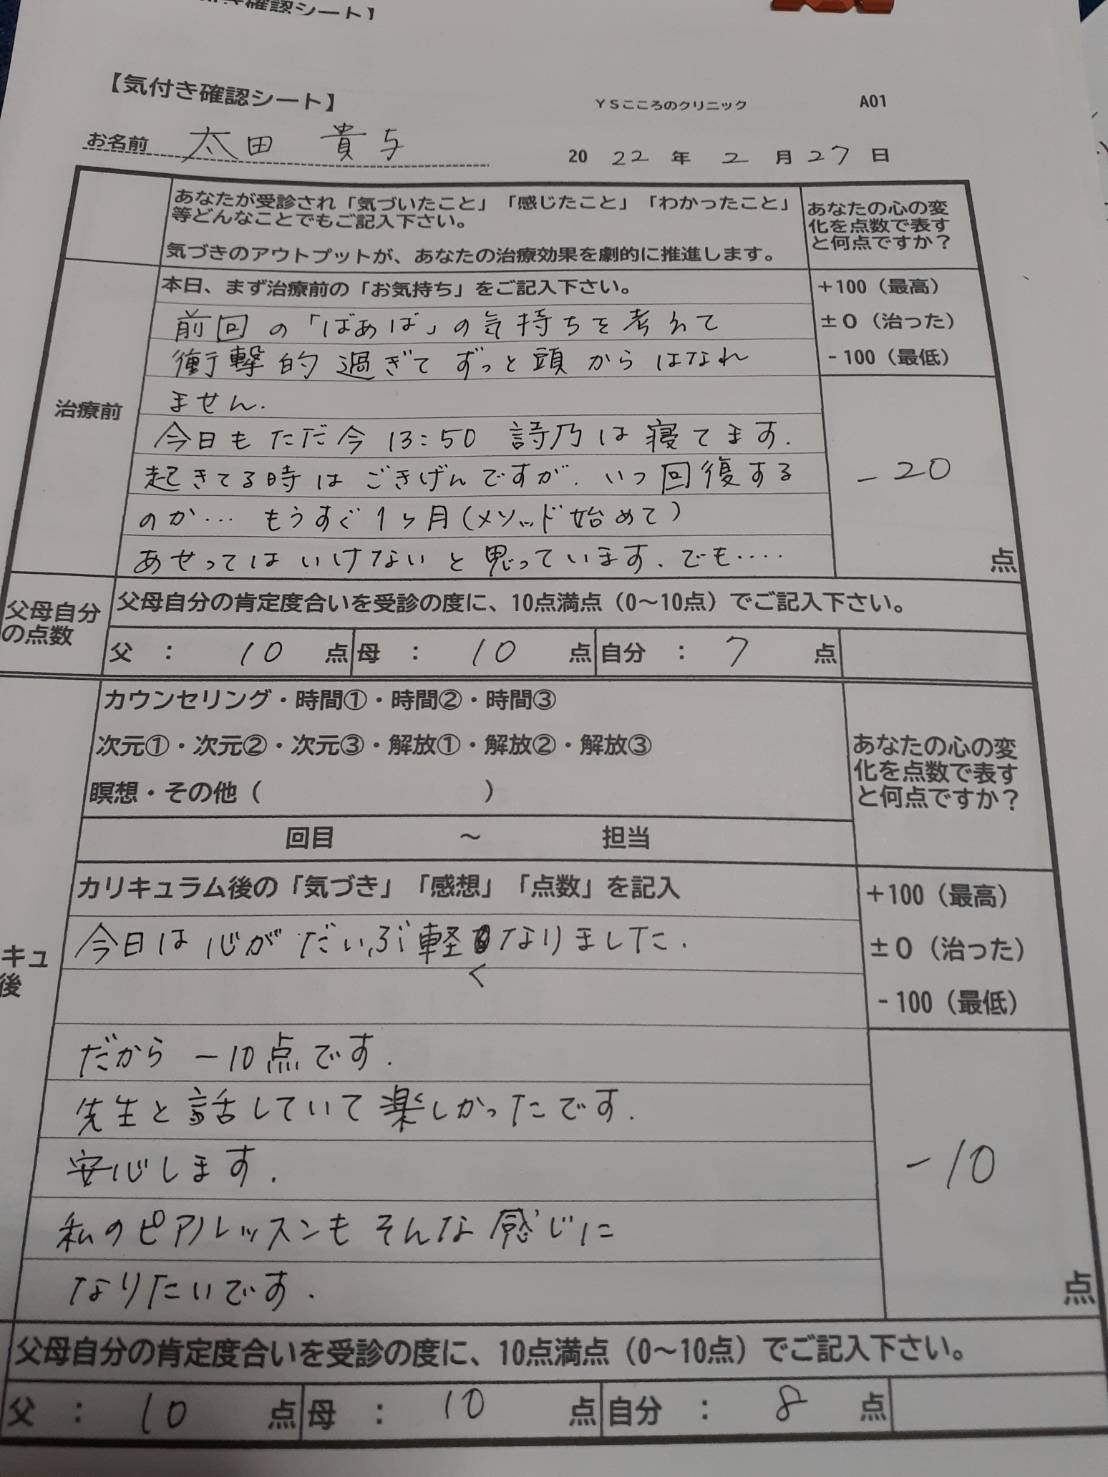 き確認シート】
【気付き確認シート】
YSこころのクリニック
A01
お名前 太田 貴与
2022年2月27日
あなたが受診され「気づいたこと」「感じたこと」「わかったこと」
等どんなことでもご記入下さい。
気づきのアウトプットが、あなたの治療効果を劇的に推進します。
あなたの心の変
化を点数で表す
と何点ですか？
治療前
本日、まず治療前の「お気持ち」をご記入下さい。
前回の「ばあば」の気持ちを考えて
衝撃的過ぎてずっと頭からはなれ
ません.
今日もただ今13:50 詩乃は寝てます.
起きてる時はごきげんですが. いつ回復する
のか… もうすぐ1ヶ月(メソッド始めて)
あせってはいけないと思っています. でも‥‥
+100（最高）
±0（治った）
-100（最低）
-20
点
父母自分
の点数
父母自分の肯定度合いを受診の度に、10点満点（0～10点）でご記入下さい。
父 ： 10 点 母 ： 10 点 自分 ： 7 点
カウンセリング・時間①・時間②・時間③
次元①・次元②・次元③・解放①・解放②・解放③
瞑想・その他（ ）
回目 ～ 担当
あなたの心の変
化を点数で表す
と何点ですか？
キュ
後
カリキュラム後の「気づき」「感想」「点数」を記入
今日は心がだいぶ軽くなりました.
だから -10点です.
先生と話していて楽しかったです.
安心します.
私のピアノレッスンもそんな感じに
なりたいです.
+100（最高）
±0（治った）
-100（最低）
-10
点
父母自分の肯定度合いを受診の度に、10点満点（0～10点）でご記入下さい。
父 ： 10 点 母 ： 10 点 自分 ： 8 点